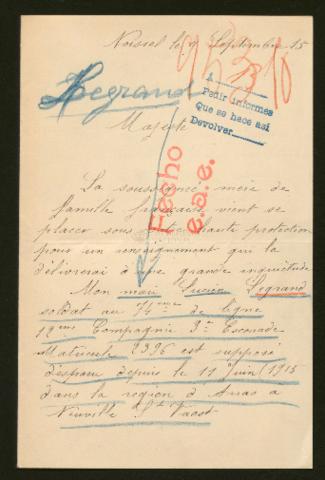 Noisiel le 9 Septembre 15
Legrand
A
Pedir informes
Que se hace así
Devolver
Majesté
La soussignée mère de
famille française vient se
placer sous votre haute protection
pour un renseignement qui la
délivrerai d'une grande inquiétude
Mon mari Lucien Legrand
soldat au 74ème de ligne
12ème Compagnie 3e Escouade
Matricule 2396 est supposé
disparu depuis le 11 juin (1915
dans la region d'Arras à
Neuville St Vaast
Fecho
e.a.e.